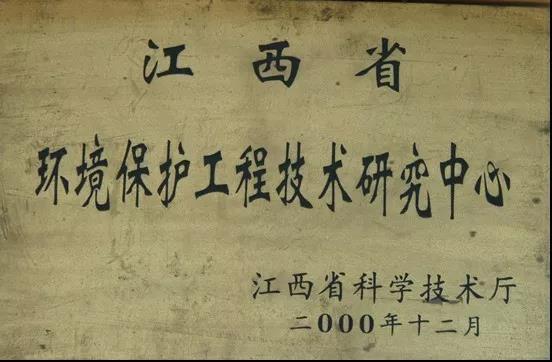 江西省
环境保护工程技术研究中心
江西省科学技术厅
二000年十二月